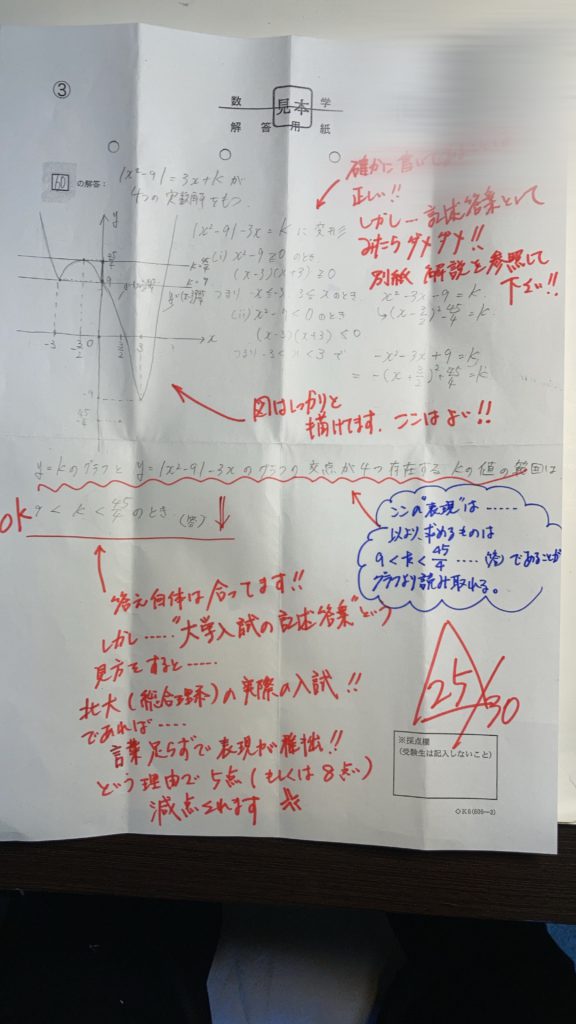 ③
数 見本 学
解 答 用 紙
60 の解答:
|x²-9| = 3x+kが
4つの実数解をもつ.
|x²-9|-3x = k に変形
(i) x²-9≧0のとき
(x-3)(x+3)≧0
つまり -x≦-3, 3≦xのとき.
x²-3x-9=k
↳(x-3/2)²-45/4=k
(ii) x²-9<0のとき
(x-3)(x+3)<0
つまり -3<x<3で
-x²-3x+9=k
= -(x+3/2)²+45/4=k
y
x
45/4
9
k=45/4
k=9
-3
-3/2
0
3/2
3
-9
-45/4
確かに
正しい!!
しかし…記述答案として
みたらダメダメ!!
別紙 解説を参照して
下さい!!
図はしっかりと
描けてます. ここはよい!!
y=kのグラフと y=|x²-9|-3xのグラフの交点が4つ存在する kの値の範囲は
OK 9<k<45/4のとき (答)
ここの"表現"は……
以上より、求めるものは
9<k<45/4 ……(答)であることが
グラフより読み取れる。
答え自体は合ってます!!
しかし……"大学入試の記述答案"という
見方をすると……
北大(総合理系)の実際の入試!!
であれば……
言葉足らずで表現が稚拙!!
という理由で5点(もしくは8点)
減点されます
25/30
※採点欄
(受験生は記入しないこと)
◇K6(606—3)